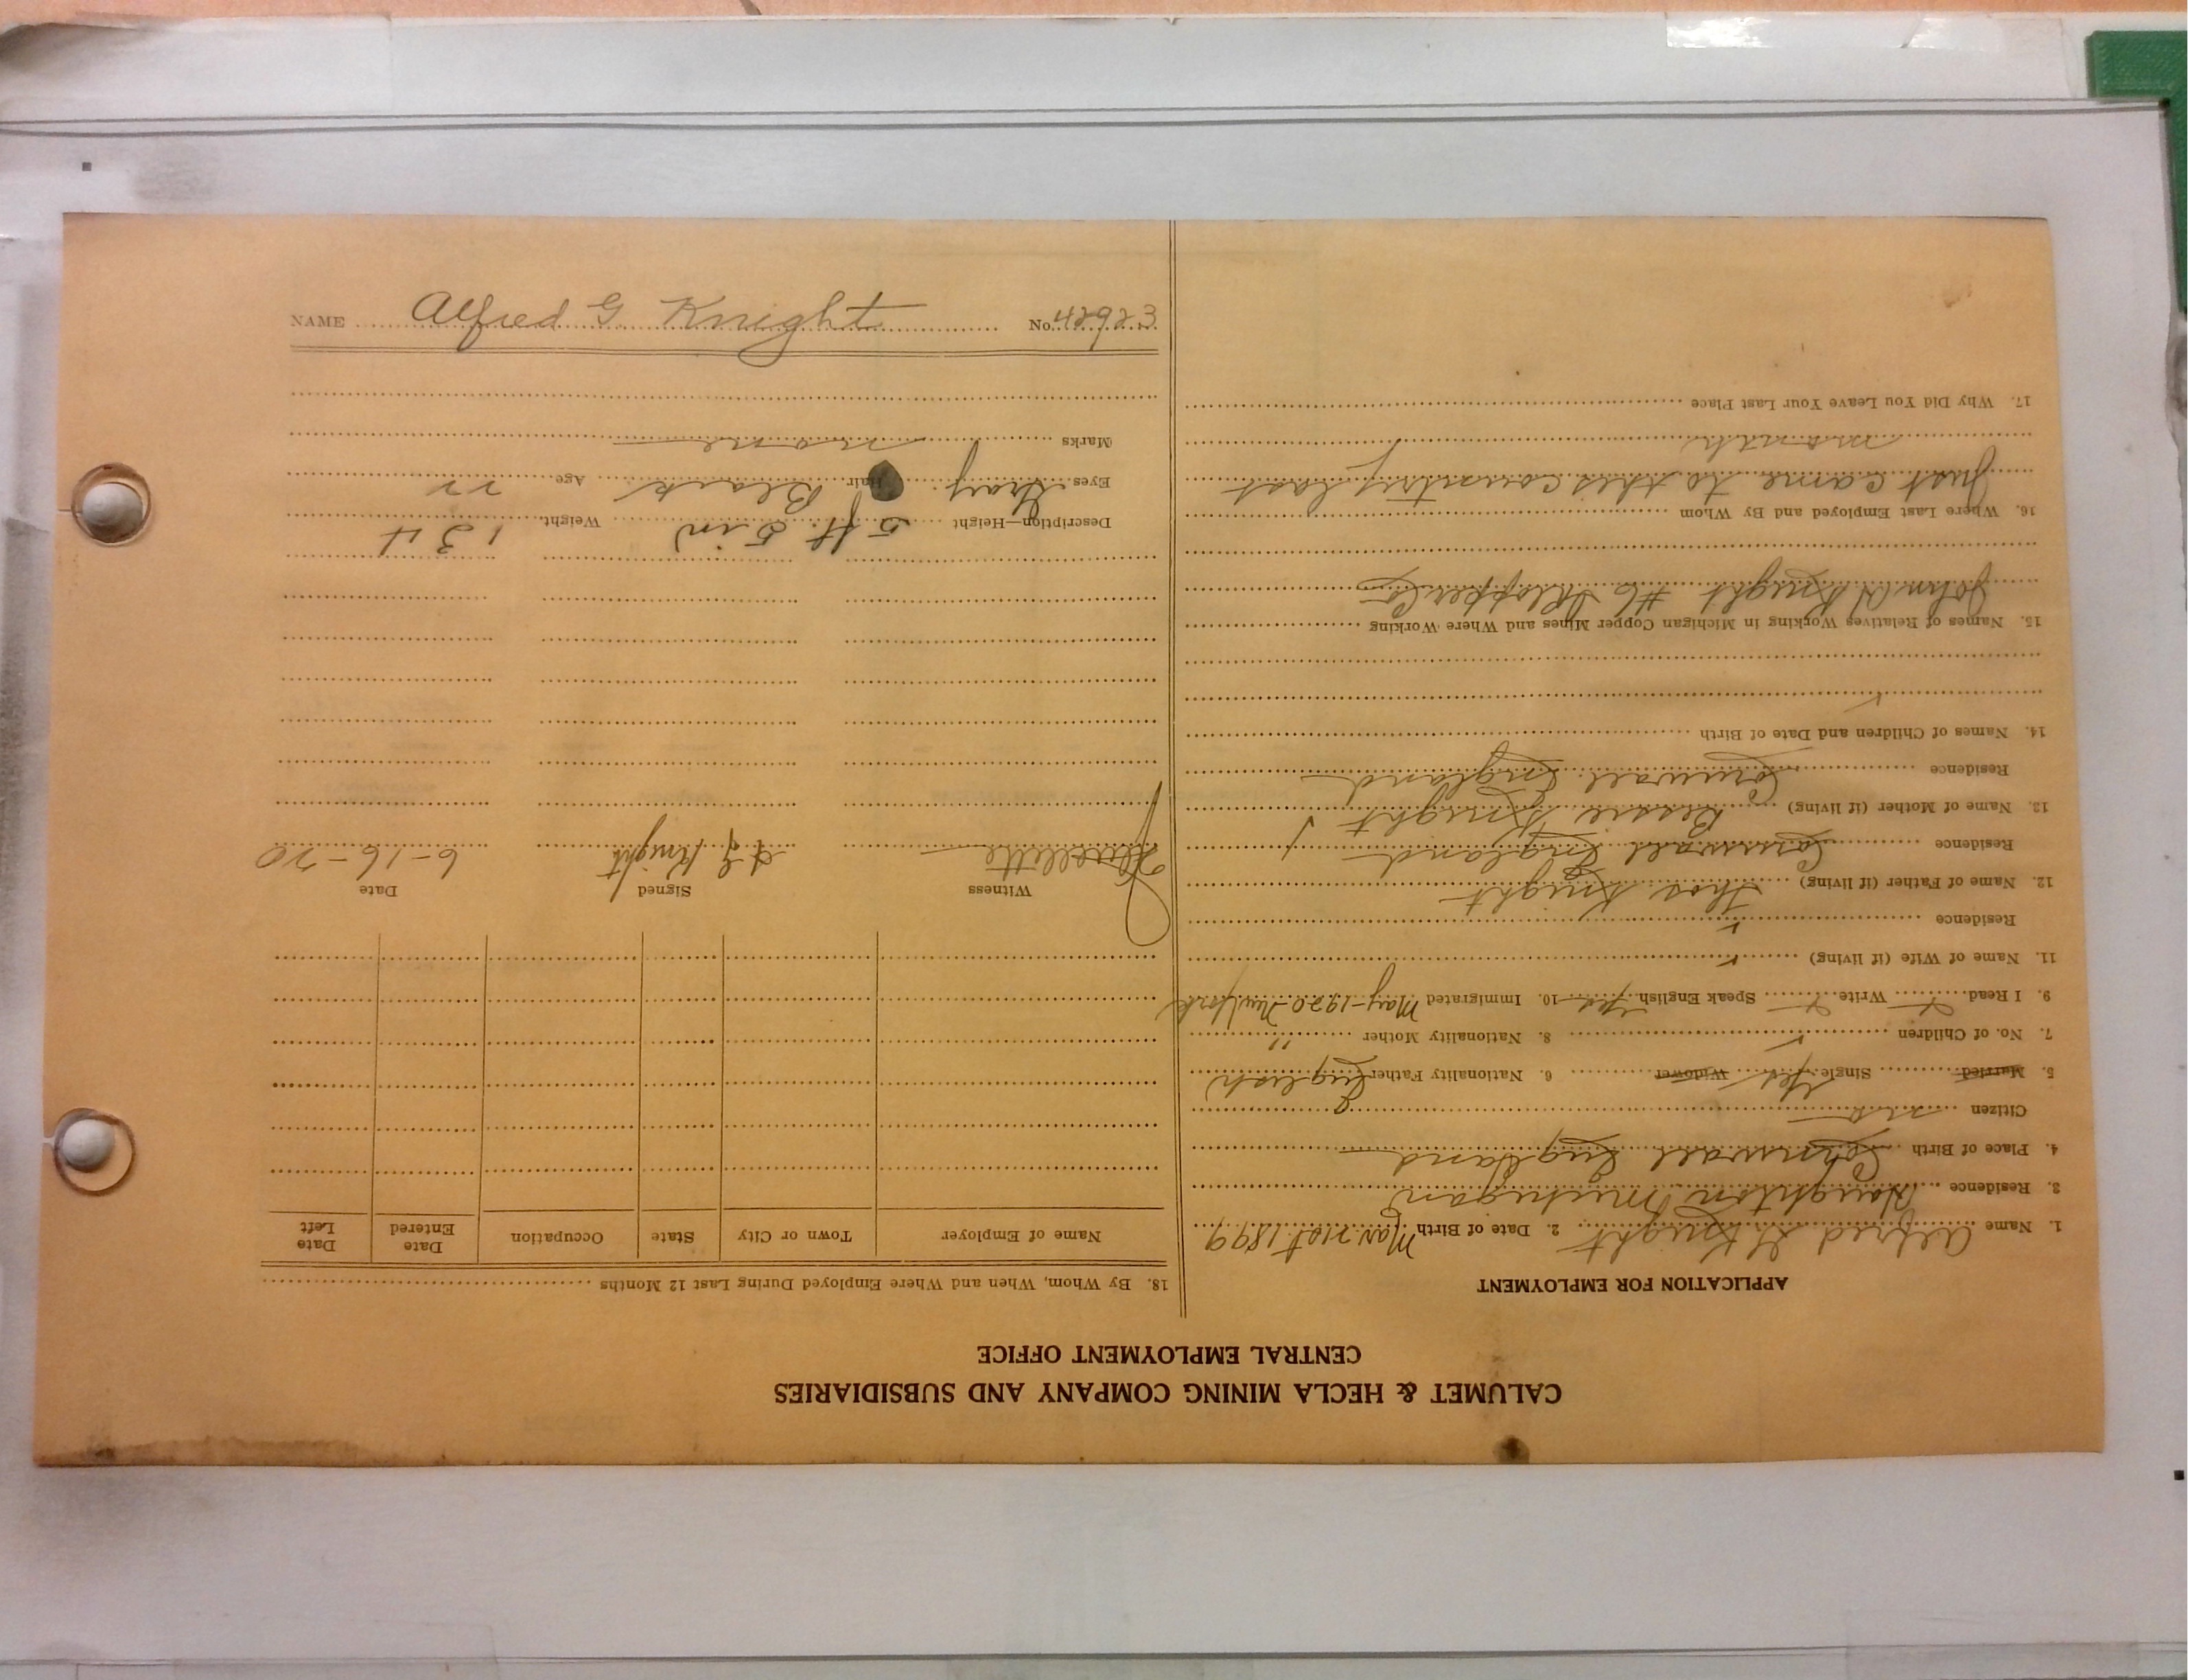 CALUMET & HECLA MINING COMPANY AND SUBSIDIARIES
CENTRAL EMPLOYMENT OFFICE
APPLICATION FOR EMPLOYMENT
1. Name Alfred G Knight 2. Date of Birth Mar. 21st 1899
3. Residence Houghton Michigan
4. Place of Birth Cornwall England
Citizen no
5. Married Single Yes Widower 6. Nationality Father English
7. No. of Children 8. Nationality Mother "
9. I Read Write Speak English Yes 10. Immigrated May-1920 New York
11. Name of Wife (if living)
Residence
12. Name of Father (if living) Thos Knight
Residence Cornwall England
13. Name of Mother (if living) Bessie Knight
Residence Cornwall England
14. Names of Children and Date of Birth
15. Names of Relatives Working in Michigan Copper Mines and Where Working
John A Knight #6
16. Where Last Employed and By Whom
Just came to this country last
month
17. Why Did You Leave Your Last Place
18. By Whom, When and Where Employed During Last 12 Months
Name of Employer Town or City State Occupation Date Entered Date Left
Witness Signed Date
A G Knight 6-16-20
Description—Height 5 ft. 5 in Weight 134
Eyes Gray Hair Black Age 22
Marks none
NAME Alfred G Knight No. 42923